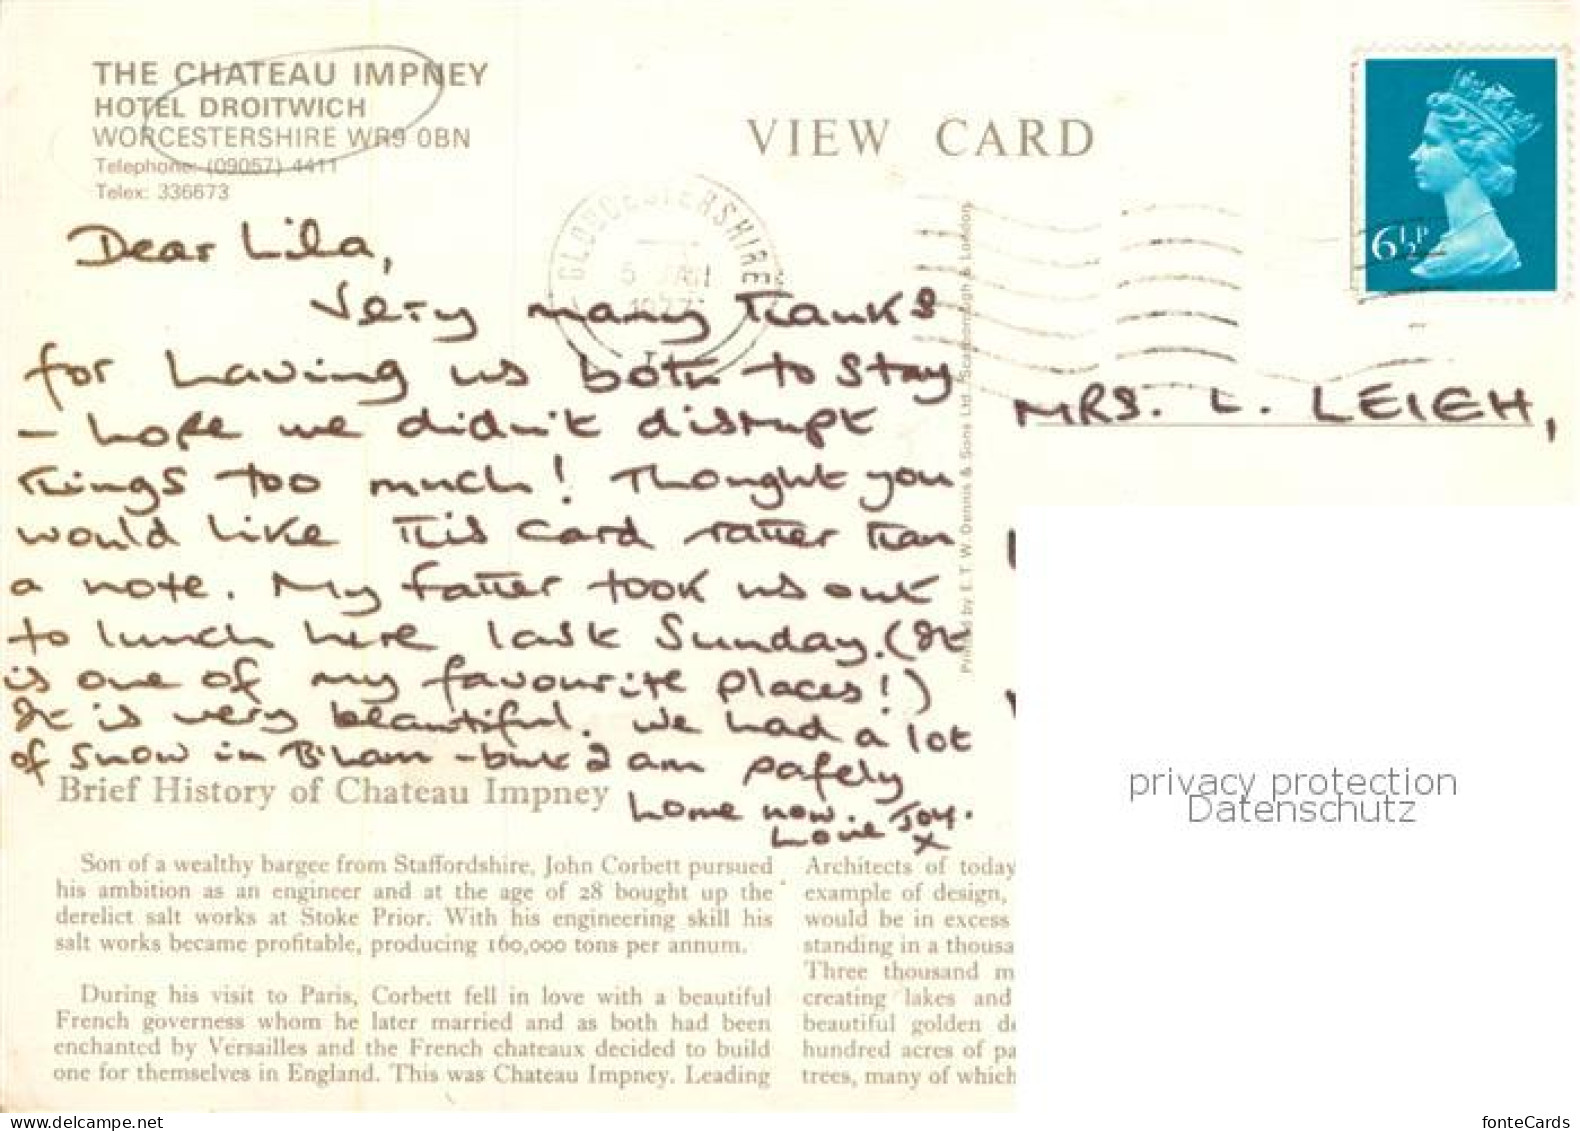 THE CHATEAU IMPNEY
HOTEL DROITWICH
WORCESTERSHIRE WR9 0BN
Telephone: (09057) 4411
Telex: 336673
VIEW CARD
GLOUCESTERSHIRE
5 JAN
1977
6½P
Dear Lila,
Very many thanks
for having us both to stay
- hope we didn't disrupt
things too much! Thought you
would like this card rather than
a note. My father took us out
to lunch here last Sunday. (It
is one of my favourite places!)
It is very beautiful. We had a lot
of snow in B'ham - but I am safely
home now.
Love Joy.
x
MRS. L. LEIGH,
Printed by E. T. W. Dennis & Sons Ltd. Scarborough & London.
Brief History of Chateau Impney
Son of a wealthy bargee from Staffordshire, John Corbett pursued
his ambition as an engineer and at the age of 28 bought up the
derelict salt works at Stoke Prior. With his engineering skill his
salt works became profitable, producing 160,000 tons per annum.
During his visit to Paris, Corbett fell in love with a beautiful
French governess whom he later married and as both had been
enchanted by Versailles and the French chateaux decided to build
one for themselves in England. This was Chateau Impney. Leading
Architects of today
example of design,
would be in excess
standing in a thousa
Three thousand m
creating lakes and
beautiful golden d
hundred acres of pa
trees, many of which
privacy protection
Datenschutz
www.delcampe.net
fonteCards